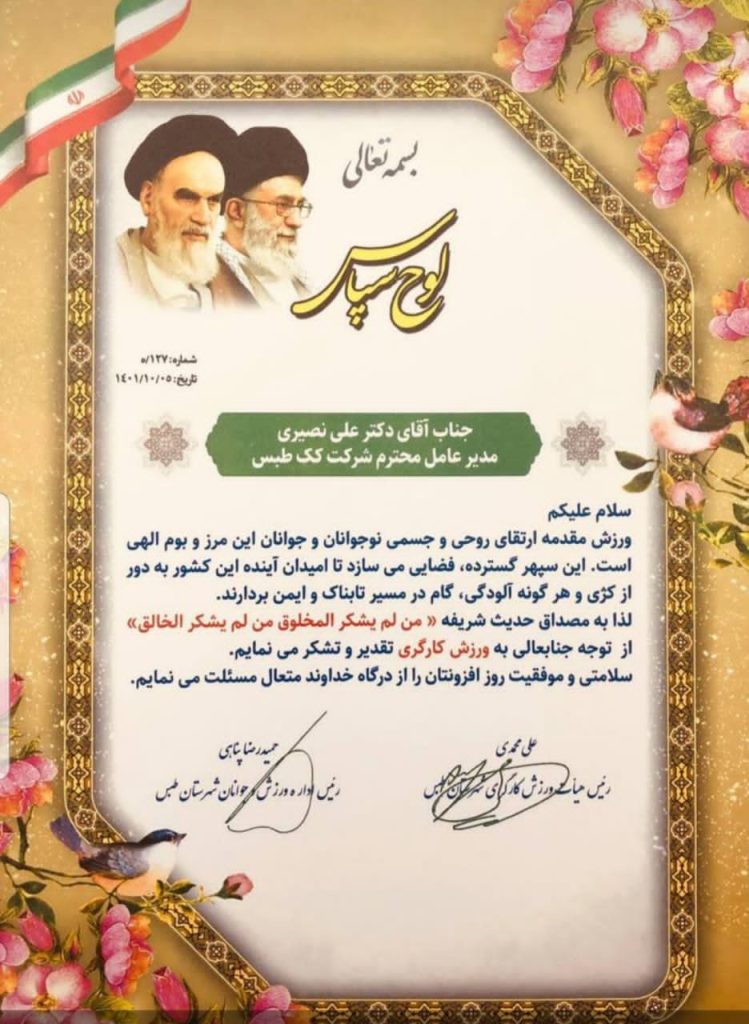 بسمه تعالی
لوح سپاس
شماره: ۰/۱۲۷
تاریخ: ۱۴۰۱/۱۰/۰۵
جناب آقای دکتر علی نصیری
مدیر عامل محترم شرکت کک طبس
سلام علیکم
ورزش مقدمه ارتقای روحی و جسمی نوجوانان و جوانان این مرز و بوم الهی
است. این سپهر گسترده، فضایی می سازد تا امیدان آینده این کشور به دور
از کژی و هر گونه آلودگی، گام در مسیر تابناک و ایمن بردارند.
لذا به مصداق حدیث شریفه « من لم یشکر المخلوق من لم یشکر الخالق»
از توجه جنابعالی به ورزش کارگری تقدیر و تشکر می نمایم.
سلامتی و موفقیت روز افزونتان را از درگاه خداوند متعال مسئلت می نمایم.
علی محمدی
رئیس هیأت ورزش کارگری شهرستان طبس
حمیدرضا پناهی
رئیس اداره ورزش و جوانان شهرستان طبس